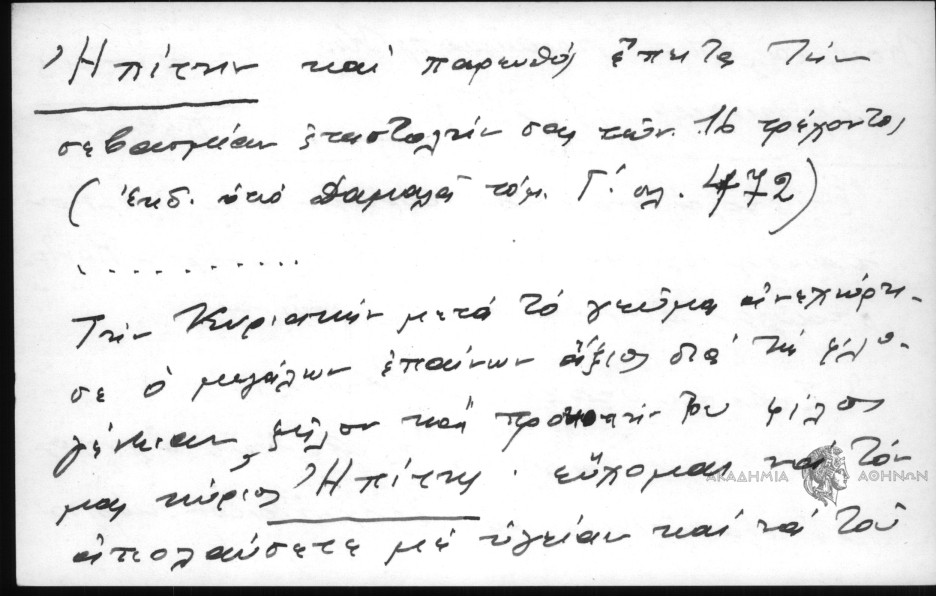 Ἠπίτην καί παρευθύς ἔπεψα τήν
σεβασμίαν ἐπιστολήν σας τῶν 16 τρέχοντος
(ἐκδ. ὑπό Δαμαλᾶ τόμ. Γ΄. σλ. 472)
...........
Τήν Κυριακήν μετά τό γεῦμα ἀνεχώρη-
σε ὁ μεγάλων ἐπαίνων ἄξιος διά τή φιλο-
γένειαν, ζῆλον καί προκοπήν του φίλος
μας κύριος Ἠπίτης. εὔχομαι νά τόν
ἀπολαύσετε μέ ὑγείαν καί νά τοῦ
ΑΚΑΔΗΜΙΑ ΑΘΗΝΩΝ